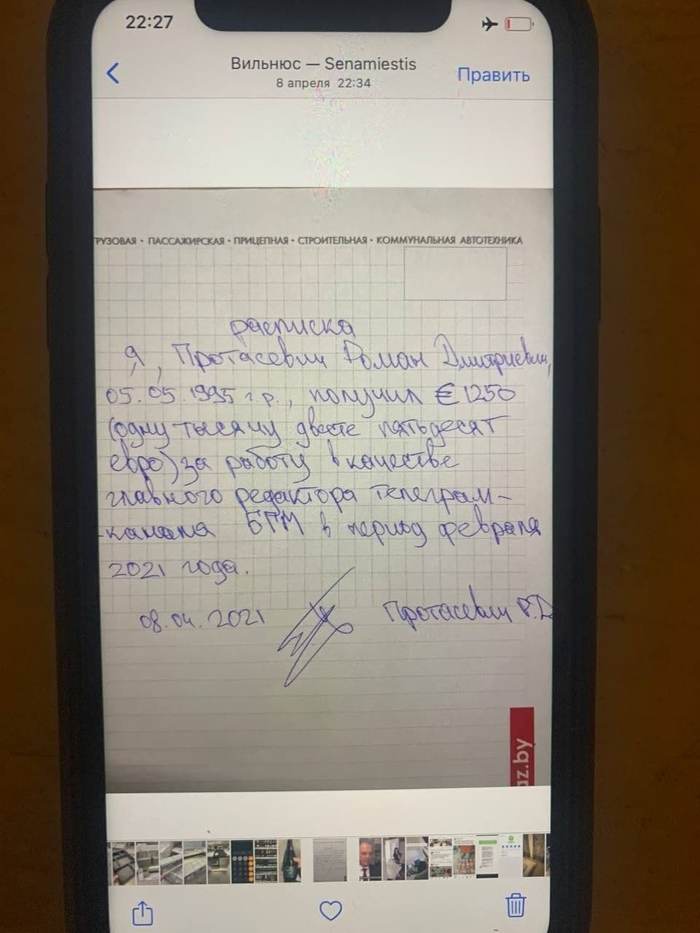 22:27
Вильнюс — Senamiestis
8 апреля 22:34
Править
ГРУЗОВАЯ • ПАССАЖИРСКАЯ • ПРИЦЕПНАЯ • СТРОИТЕЛЬНАЯ • КОММУНАЛЬНАЯ АВТОТЕХНИКА
расписка
Я, Протасевич Роман Дмитриевич,
05.05.1995 г.р., получил €1250
(одну тысячу двести пятьдесят
евро) за работу в качестве
главного редактора телеграм-
-канала БГМ в период февраля
2021 года.
08.04.2021 Протасевич Р.Д
az.by